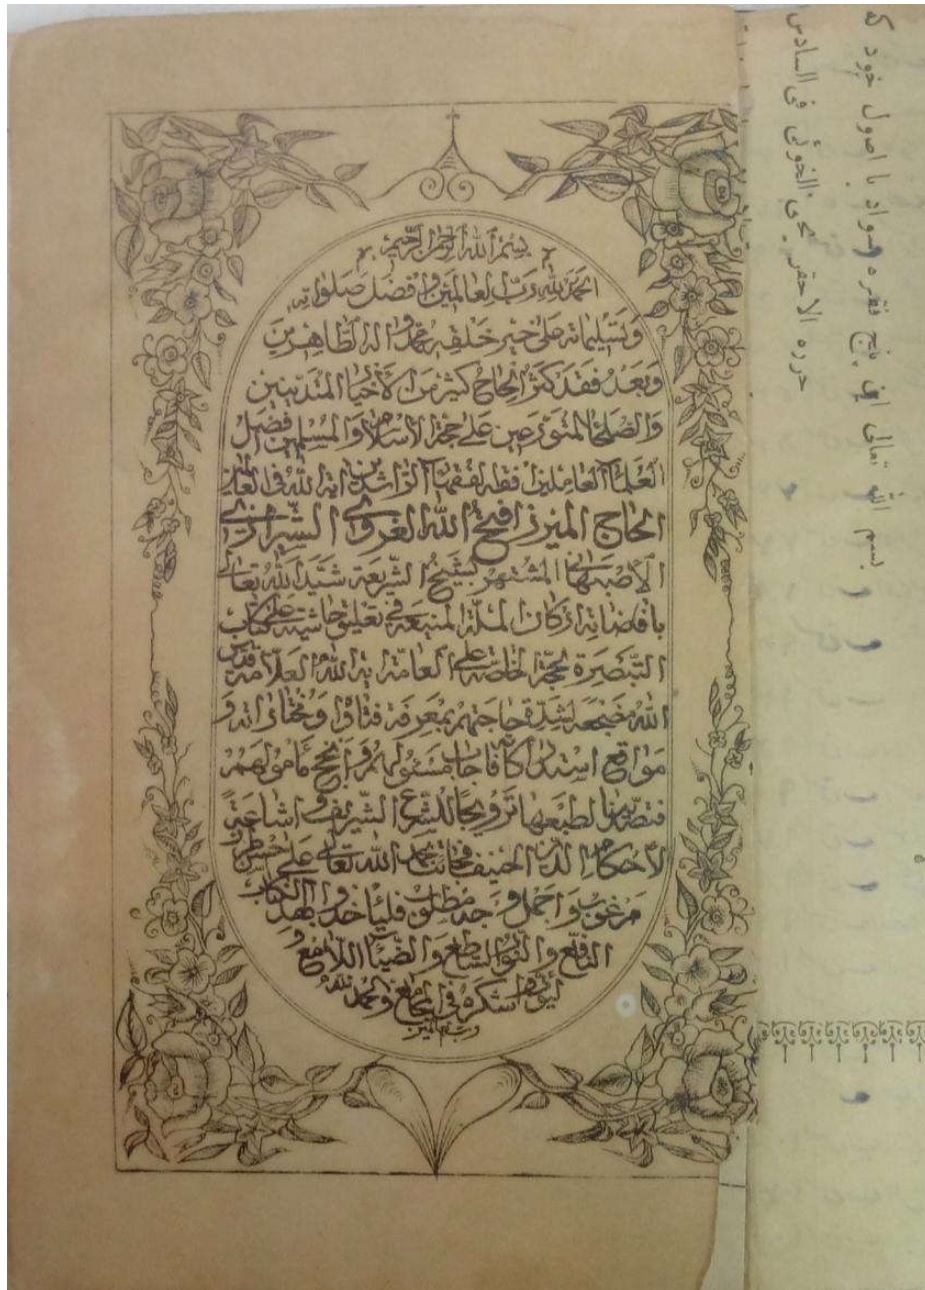 بسم الله الرحمن الرحيم
الحمد لله رب العالمین وافضل صلواته
وتسلیماته علی خیر خلقه محمد واله الطاهرین
وبعد فقد کثر الحاح کثیر من الاخیا المتدینین
والصلحا المتورعین علی حجة الاسلام والمسلمین افضل
العلمآ العاملین افقه الفقهآ الراشدین ایة الله فی العالمین
الحاج المیرزا فتح الله الغروی الشیرازی
الاصبهانی المشتهر بشیخ الشریعة شید الله تعالی
بافضاته ارکان الملة المنیعة فی تعلیق حاشیة علی کتاب
التبصرة لحجة الخاصة علی العامة ایة الله العلامة قدس
الله مضجعه لشدة حاجتهم بمعرفة فتاواه ومختاراته و
مواقع استدراکاته فاجاب مسئولهم وانجح مامولهم
فتصدینا لطبعها ترویجا للشرع الشریف واشاعة
لاحکام الدین الحنیف فجائت بحمد الله تعالی علی احسن طرز
مرغوب واجمل وجه مطلوب فلیأخذوا بهذا الکتاب
النافع والنور الساطع والضیآ اللامع و
لیؤدوا شکره فی المجامع والحمد لله
رب العالمین
بسم الله تعالی این پنج فقره سواد با اصول خود که
حرره الاحقر یحیی الخوئی فی السادس